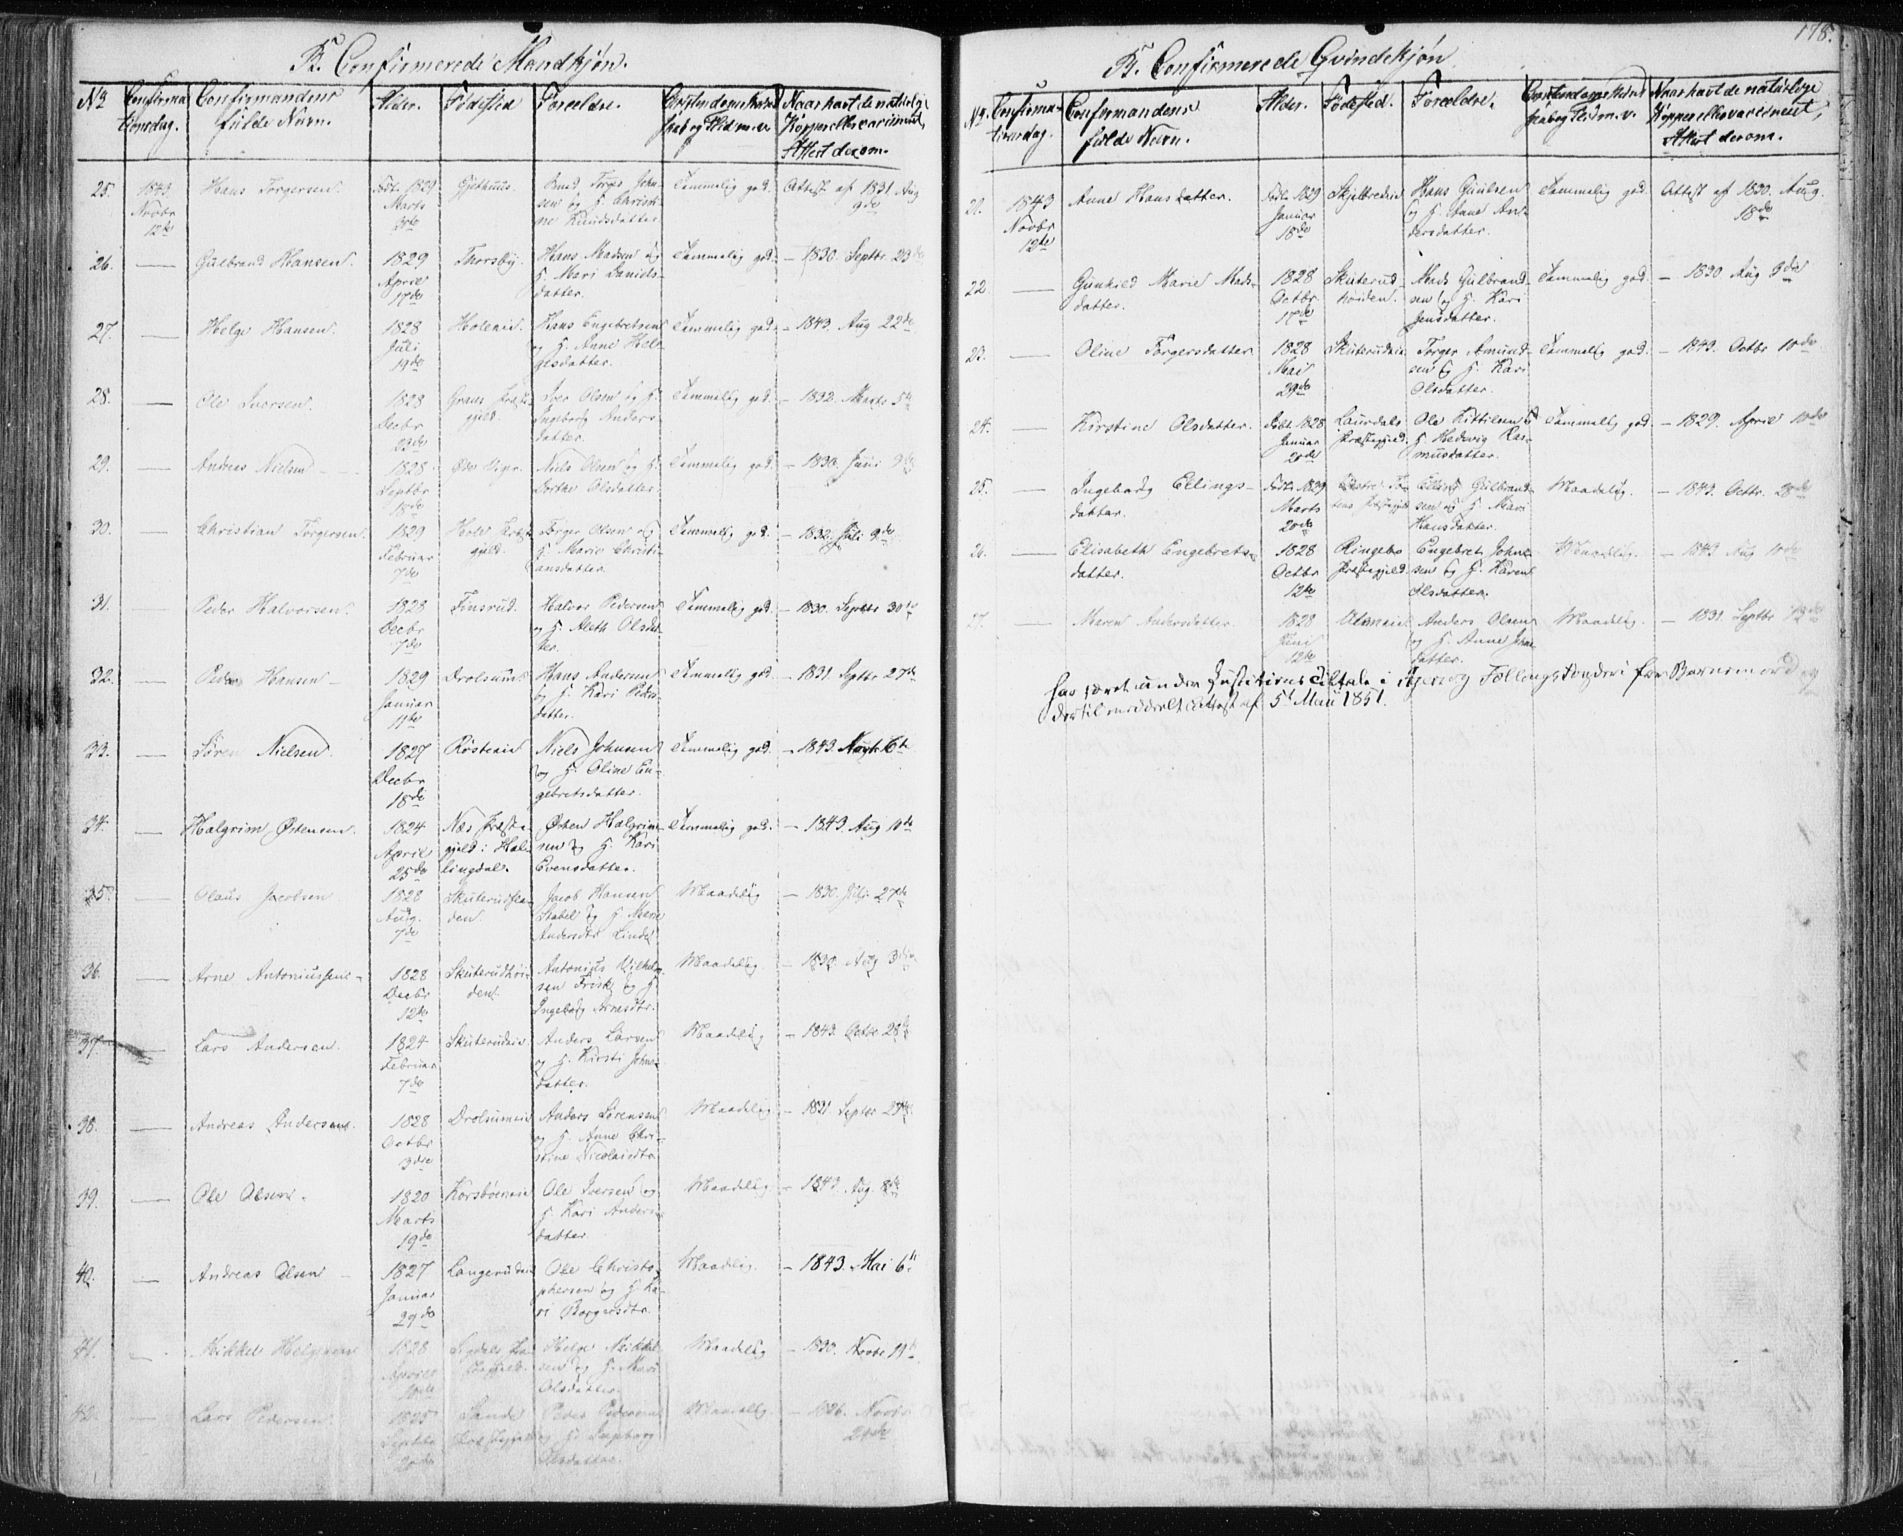 B. Confirmerede Mandkjøn.
No Confirmationsdag. Confirmandens fulde Navn. Alder. Fødested Forældre. Christendoms Kundskab og Flid m.v. Naar havt de naturlige Kopper eller vaccineret, Attest derom.
25. 1843 Novbr 12te Hans Torgersen. Født 1829 Marts Gjethuus. Smed Torger Johnsen og H. Christine Knudsdatter Temmelig god. Attest af 1831. Aug 9de
26. — Gulbrand Hansen. 1829 April 17de Thorsby. Hans Madsen og H. Mari Danielsdatter. Temmelig god. — 1830. Septbr 23de
27. — Helge Hansen. 1828 Juli 19de Holeeie. Hans Engebretsen og H. Anne Helgesdatter. Temmelig god. — 1843. Aug 22de
28. — Ole Iversen. 1828 Decbr 23de Grans Præstegjeld. Iver Olsen og H. Ingeborg Andersdatter. Temmelig god. — 1832. Marts 5te
29. — Andreas Nielsen 1828 Septbr 18de Niels Olsen og H. Dorthe Olsdatter. Temmelig god. — 1830. Juni
30. — Christian Torgersen. 1829 Februar 7de Hole Præstegjeld. Torger Olsen og H. Marie Christiansdatter. Temmelig god. — 1832. Juli 9de
31. — Peder Halvorsen. 1828 Decbr 7de Finsrud. Halvor Pedersen og H. Aleth Olsdatter. Temmelig god. — 1830. Septbr 30te
32. — Peder Hansen 1829 Januar 11te Drolsum. Hans Andersen og H. Kari Pedersdatter. Temmelig god. — 1831. Septbr 27de
33. — Søren Nielsen. 1827 Decbr 18de Røsteeie Niels Johnsen og H. Oline Engebretsdatter. Temmelig god. — 1843. Novbr 6te
34. — Halgrim Østensen. 1824 April 25de Næs Præstegjeld i Hallingdal. Østen Halgrimsen og H. Kari Evensdatter. Temmelig god. — 1843. Aug 10de
35. — Olaus Jacobsen 1828 Aug. 7de Skuterudfladen. Jacob Hansen Stabel og H. Marie Andersdtr Linde Maadelig — 1830. Juli 27de
36. — Arne Antoniussen 1828 Decbr 12te Skuterudhøiden. Antonius Vilhelmsen Frisk og H. Ingeborg Arnesdtr. Maadelig — 1830. Aug 3die
37. — Lars Andersen. 1824 Februar 7de Skuterudeie. Anders Larsen og H. Kirsti Johnsdatter. Maadelig — 1843. Octbr 28de
38. — Andreas Andersen. 1828 Octbr 3die Drolsumeie Anders Sørensen og H. Anne Christine Nicolaisdtr Maadelig — 1831. Septbr 27de
39. — Ole Olsen. 1820 Marts 19de Korsbøneie Ole Iversen og H. Kari Andersdatter Maadelig — 1843. Aug. 8de
40. — Andreas Olsen 1827 Januar 29de Langerudeie Ole Christophersen og H. Kari Borgersdtr. Maadelig. — 1843. Mai 6te
41. — Mikkel Helgesen 1828 Sigdals Præstegjeld. Helge Mikkelsen og H. Mari Olsdatter. Maadelig — 1830. Novbr 11te
42. — Lars Pedersen. 1825 Septbr 20de Sande Præstegjeld Peder Pedersen og H. Ingeborg Olsdatter. Maadelig — 1826. Novbr
178.
B. Confirmerede Qvindekjøn
No. Confirmationsdag. Confirmandens fulde Navn. Alder. Fødested. Forældre. Christendoms Kundskab og Flid m.v. Naar havt de naturlige Kopper eller vaccineret, Attest derom.
21. 1843 Novbr 12te Anne Hansdatter. Født 1829 Januar 18de Skjelbredeie Hans Guulsen og H. Anne Andersdatter. Temmelig god. Attest af 1830. Aug. 18de
22. — Gunhild Marie Madsdatter. 1828 Octbr 17de Skuterudhøiden. Mads Gulbrandsen og H. Kari Jensdatter. Temmelig god. — 1830 Aug 3die
23. — Oline Torgersdatter 1828 Mai 29de Skuterudeie Torger Amundsen og H. Kari Olsdatter. Temmelig god. — 1843. Octbr 10de
24. — Kirstine Olsdatter. Født 1828 Januar 20de Laurdals Præstegjeld. Ole Kittilsen og H. Hedevig Rasmusdatter. Temmelig god. — 1829. April 10de
25. — Ingeborg Ellingsdatter. Født 1829 Marts 20de Præstegjeld Elling Gulbrandsen og H. Mari Hansdatter. Maadelig. — 1843. Octbr. 28de
26. — Elisabeth Engebretsdatter. 1828 Octbr 12te Ringebo Præstegjeld. Engebret Johnsen og H. Karen Olsdatter. Maadelig. — 1843 Aug 10de
27. — Maren Andersdatter. 1828 Juni 12te Anders Olsen og H. Anne Johnsdatter. Maadelig. — 1831. Septbr
har været under Justitiens Tiltale i Ager og Follings Sorenskriveri for Barnemord og
dertil meddelt Attest af 5te Mai 1851.